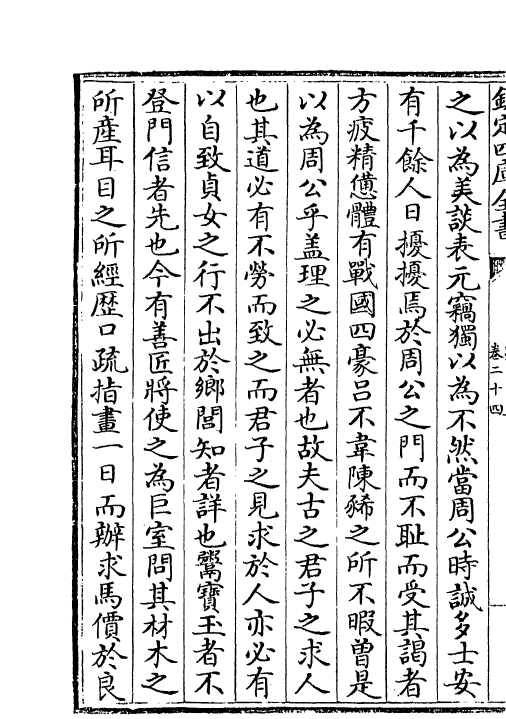 欽定四庫全書
卷二十四
之以為美談表元竊獨以為不然當周公時誠多士安
有千餘人日擾擾焉於周公之門而不耻而受其謁者
方疲精憊體有戰國四豪吕不韋陳豨之所不暇曾是
以為周公乎盖理之必無者也故夫古之君子之求人
也其道必有不勞而致之而君子之見求於人亦必有
以自致貞女之行不出於鄉閭知者詳也鬻寳玉者不
登門信者先也今有善匠將使之為巨室問其材木之
所產耳目之所經歷口疏指畫一日而辦求馬價於良